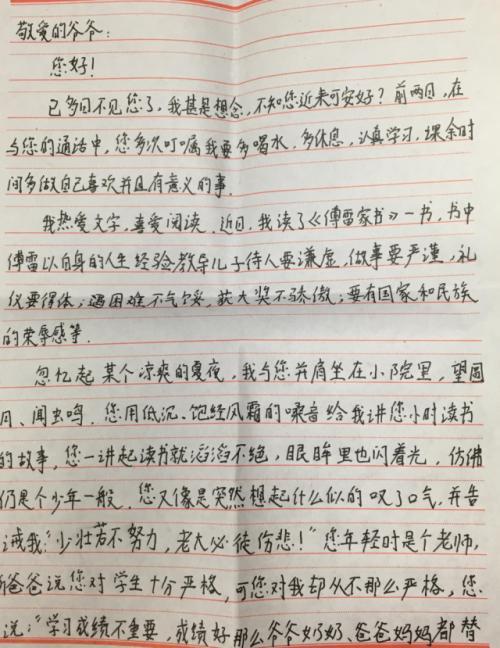 敬爱的爷爷：
您好！
已多日不见您了，我甚是想念，不知您近来可安好？前两日，在
与您的通话中，您多次叮嘱我要多喝水，多休息，认真学习，课余时
间多做自己喜欢并且有意义的事.
我热爱文字，喜爱阅读.近日，我读了《傅雷家书》一书，书中
傅雷以自身的人生经验教导儿子待人要谦虚，做事要严谨，礼
仪要得体；遇困难不气馁，获大奖不骄傲；要有国家和民族
的荣辱感等.
忽忆起某个凉爽的夏夜，我与您并肩坐在小院里，望圆
月、闻虫鸣.您用低沉、饱经风霜的嗓音给我讲您小时读书
的故事，您一讲起读书就滔滔不绝，眼眸里也闪着光，仿佛
仍是个少年一般.您又像是突然想起什么似的叹了口气，并告
诫我：“少壮若不努力，老大必徒伤悲！”您年轻时是个老师，
爸爸说您对学生十分严格，可您对我却从不那么严格，您
说：“学习成绩不重要，成绩好那么爷爷奶奶、爸爸妈妈都替